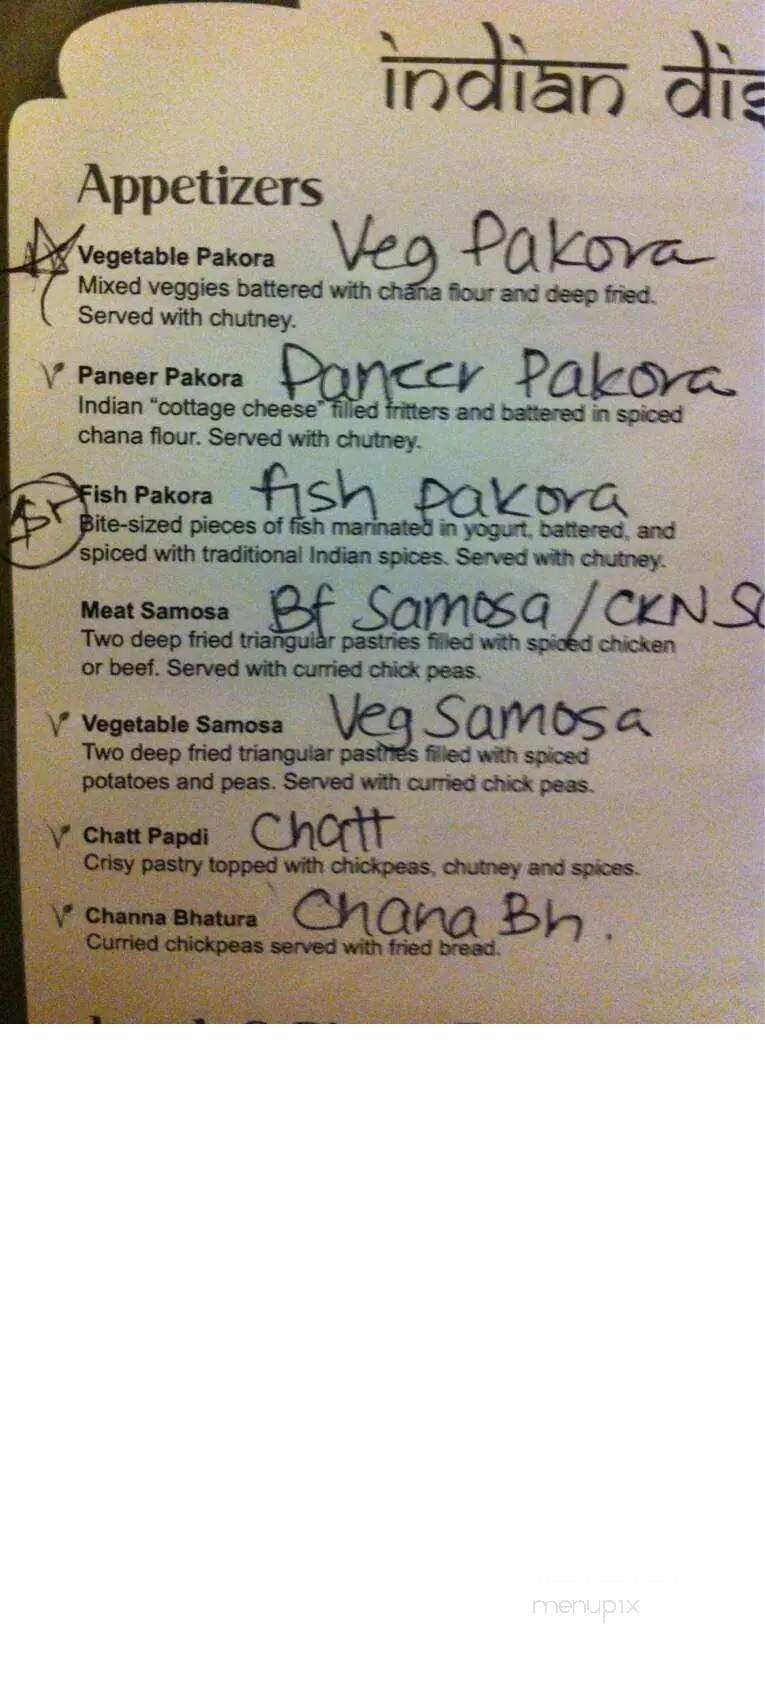 indian dis
Appetizers
Vegetable Pakora Veg Pakora
Mixed veggies battered with chana flour and deep fried.
Served with chutney.
V Paneer Pakora Paneer Pakora
Indian “cottage cheese” filled fritters and battered in spiced
chana flour. Served with chutney.
Fish Pakora fish pakora
Bite-sized pieces of fish marinated in yogurt, battered, and
spiced with traditional Indian spices. Served with chutney.
Meat Samosa Bf Samosa / CKN Sa
Two deep fried triangular pastries filled with spiced chicken
or beef. Served with curried chick peas.
V Vegetable Samosa Veg Samosa
Two deep fried triangular pastries filled with spiced
potatoes and peas. Served with curried chick peas.
V Chatt Papdi Chatt
Crisy pastry topped with chickpeas, chutney and spices.
V Channa Bhatura Chana Bh.
Curried chickpeas served with fried bread.
menupix